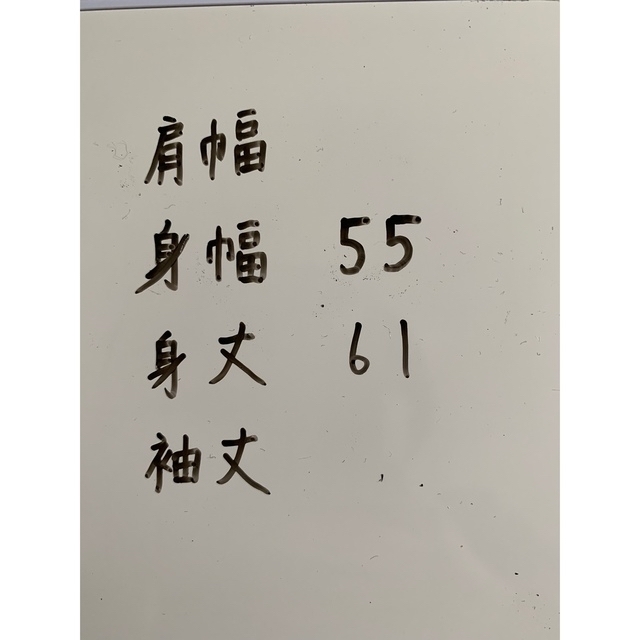 肩幅
身幅 55
身丈 61
袖丈